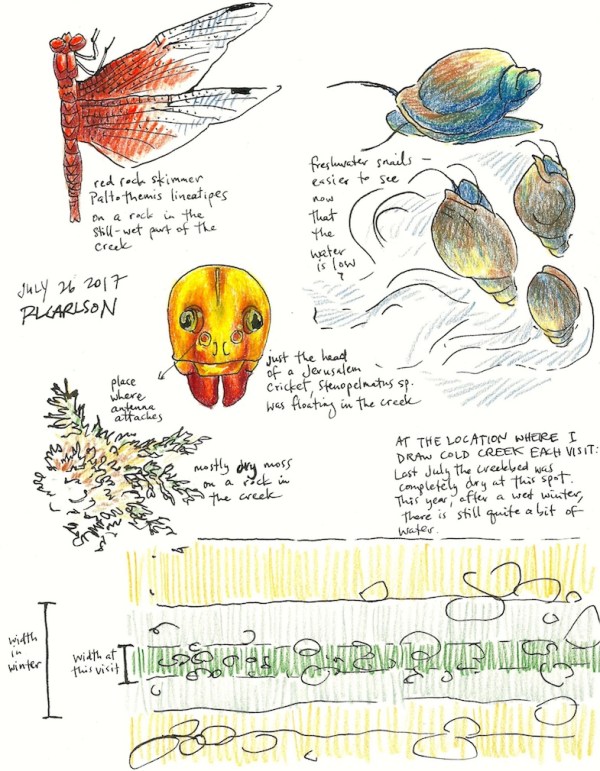 red rock skimmer
Paltothemis lineatipes
on a rock in the
still-wet part of the
creek
freshwater snails —
easier to see
now
that
the
water
is low
?
JULY 26 2017
RLCARLSON
just the head
of a Jerusalem
Cricket, Stenopelmatus sp.
was floating in the creek
place
where
antenna
attaches
mostly dry moss
on a rock in
the creek
AT THE LOCATION WHERE I
DRAW COLD CREEK EACH VISIT:
Last July the creekbed was
completely dry at this spot.
This year, after a wet winter,
there is still quite a bit of
water.
width
in
winter
width at
this visit